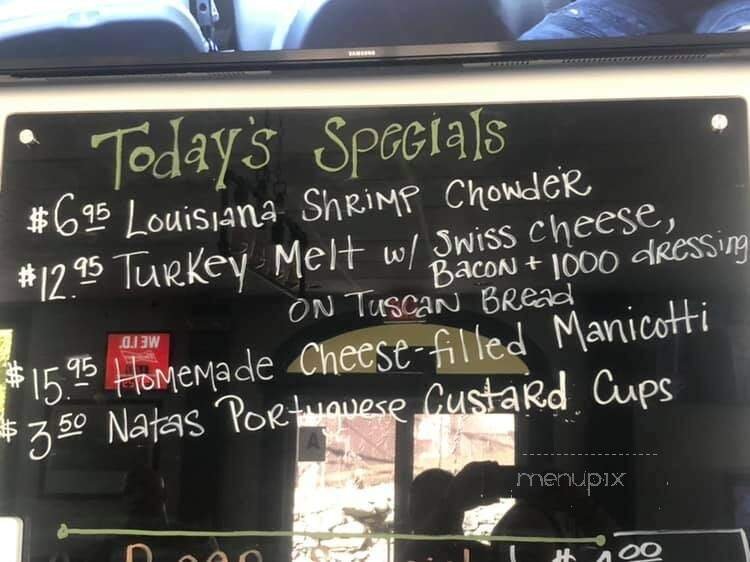 SAMSUNG
Today's Specials
$6.95 Louisiana Shrimp Chowder
$12.95 Turkey Melt w/ Swiss cheese,
Bacon + 1000 dressing
on Tuscan Bread
WE I.D.
$15.95 Homemade Cheese-filled Manicotti
$3.50 Natas Portuguese Custard Cups
A
menupix
00